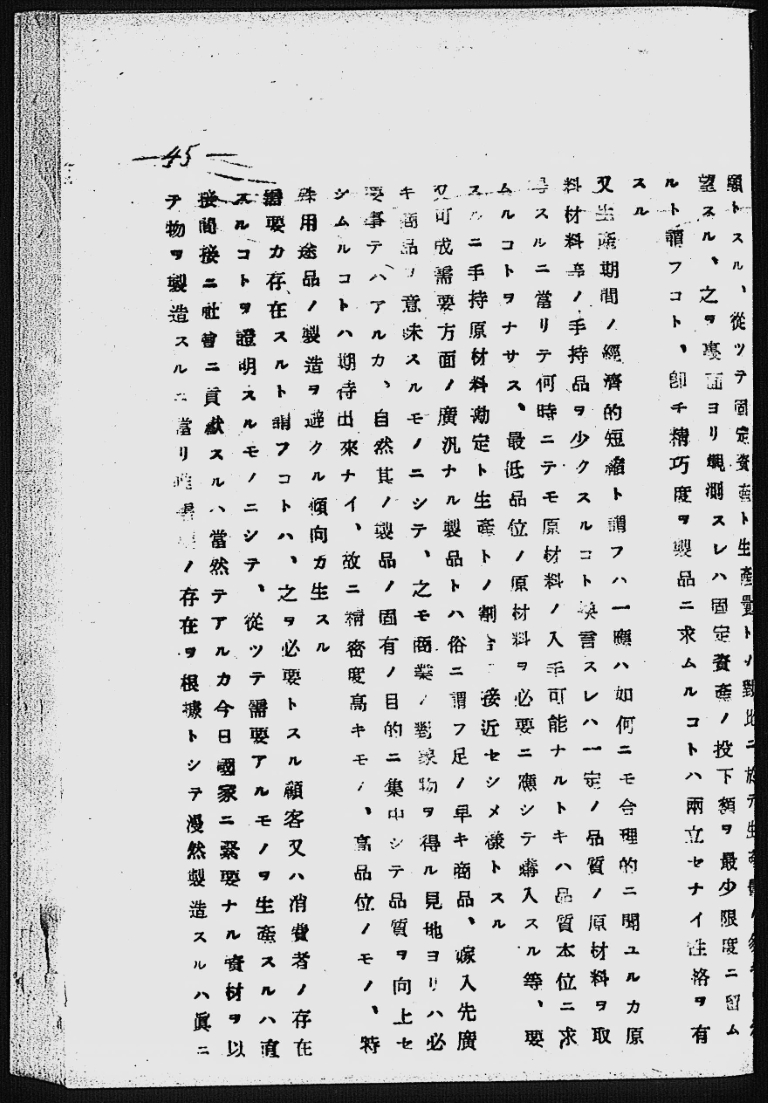 45
願トスル、從ツテ固定資產ト生產量トノ對比ニ於テ生產
望スル、之ヲ裏面ヨリ觀測スレハ固定資產ノ投下額ヲ最少限度ニ留ム
ルト謂フコト、卽チ精巧度ヲ製品ニ求ムルコトハ兩立セナイ性格ヲ有
スル
又生產期間ノ經濟的短縮ト謂フハ一應ハ如何ニモ合理的ニ聞ユルカ原
料材料等ノ手持品ヲ少クスルコト換言スレハ一定ノ品質ノ原材料ヲ取
スルニ當リテ何時ニテモ原材料ノ入手可能ナルトキハ品質本位ニ求
ムルコトヲナサス、最低品位ノ原材料ヲ必要ニ應シテ購入スル等、要
スルニ手持原材料勘定ト生產トノ割合ニ接近セシメ樣トスル
又可成需要方面ノ廣汎ナル製品トハ俗ニ謂フ足ノ早キ商品、嫁入先廣
キ商品ヲ意味スルモノニシテ、之モ商業ノ對象物ヲ得ル見地ヨリハ必
要事テハアルカ、自然其ノ製品ノ固有ノ目的ニ集中シテ品質ヲ向上セ
シムルコトハ期待出來ナイ、故ニ精密度高キモノ、高品位ノモノ、特
殊用途品ノ製造ヲ避クル傾向カ生スル
需要カ存在スルト謂フコトハ、之ヲ必要トスル顧客又ハ消費者ノ存在
スルコトヲ證明スルモノニシテ、從ツテ需要アルモノヲ生產スルハ直
接間接ニ社會ニ貢獻スルハ當然テアルカ今日國家ニ緊要ナル資材ヲ以
テ物ヲ製造スルニ當リ唯需要ノ存在ヲ根據トシテ漫然製造スルハ眞ニ